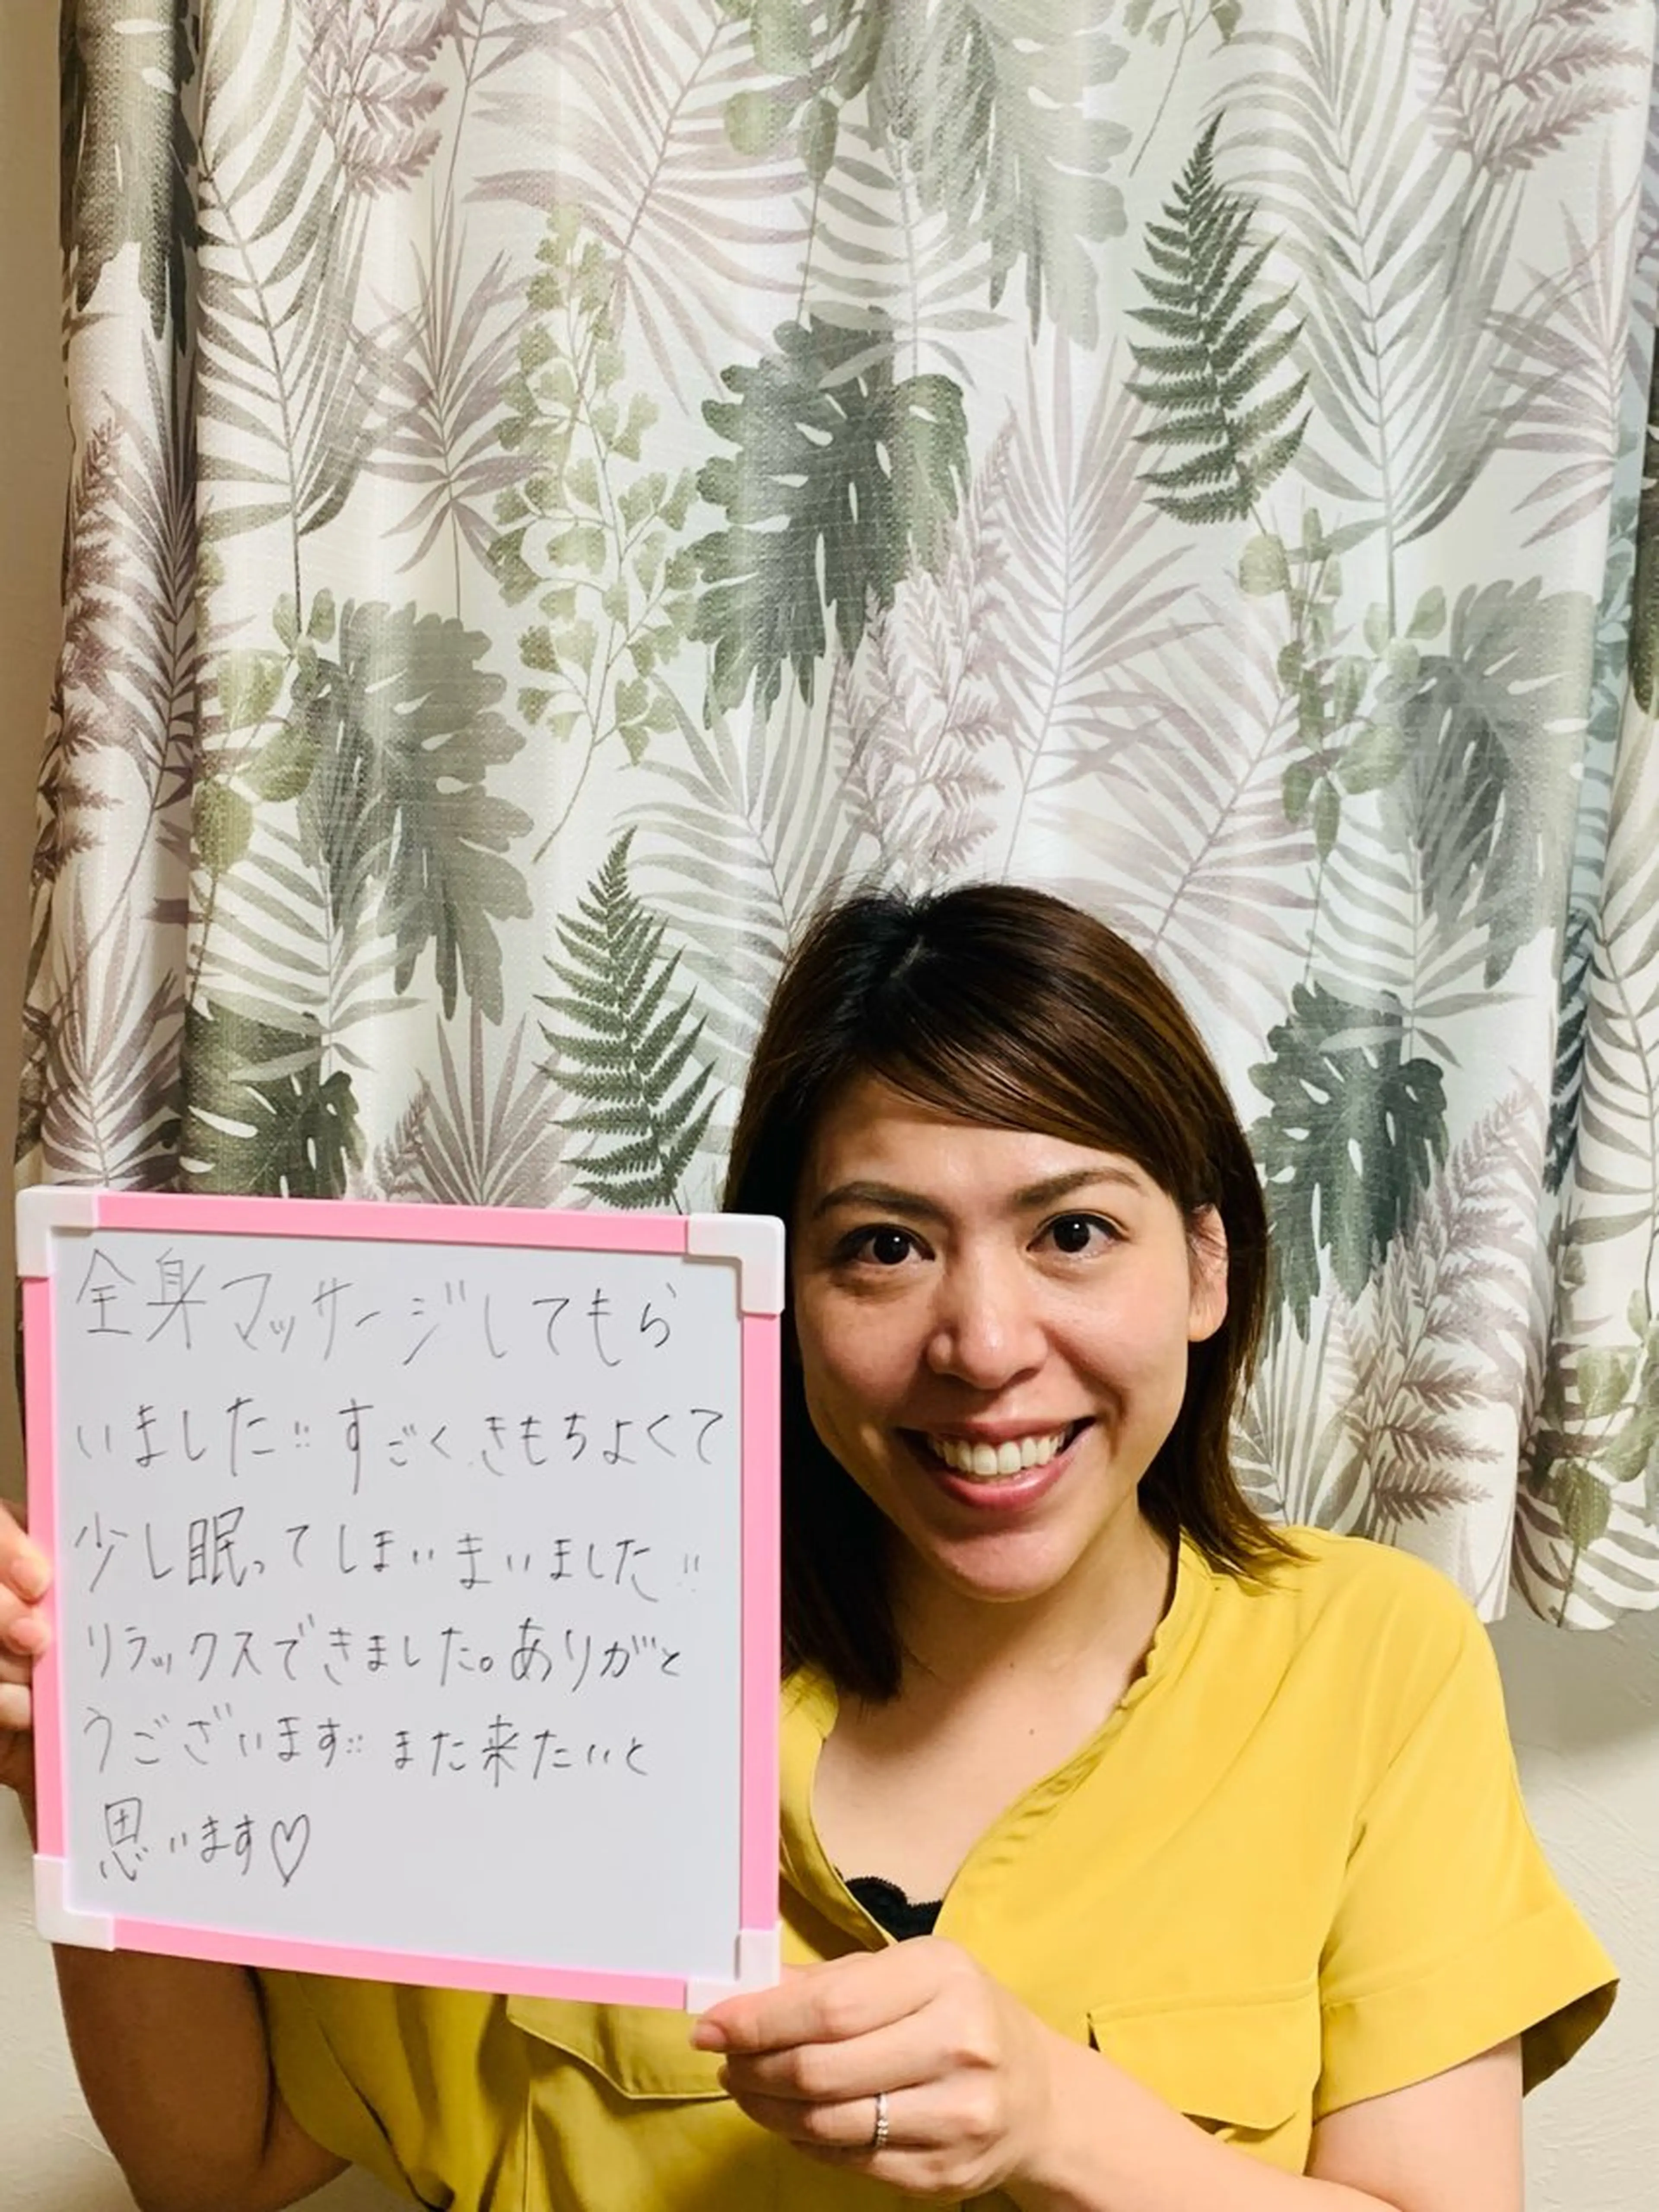 全身マッサージしてもら
いました!! すごくきもちよくて
少し眠ってしまいまいました!!
リラックスできました。ありがと
うございます!! また来たいと
思います♡